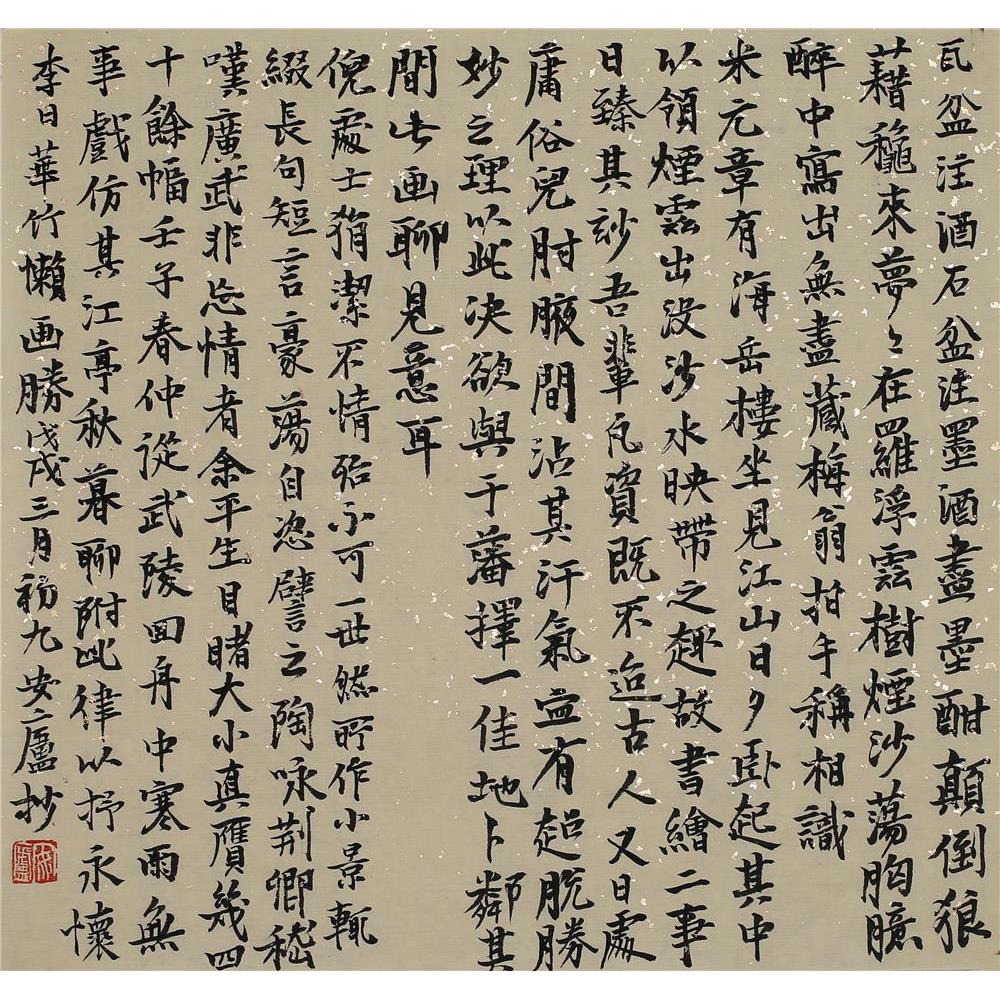 瓦盆注酒石盆注墨酒盡墨酣顛倒狼
藉穐來夢々在羅浮雲樹煙沙蕩胸臆
醉中寫出無盡藏梅翁拍手稱相識
米元章有海岳樓坐見江山日夕臥起其中
以領煙雲出没沙水映帶之趣故書繪二事
日臻其玅吾輩凡資既不迨古人又日處
庸俗兒肘腋間沾其汗氣豈有超脱勝
妙之理以此決欲與于藩擇一佳地卜鄰其
間此画聊見意耳
倪處士狷潔不情殆不可一世然所作小景輒
綴長句短言豪蕩自恣譬之陶咏荆卿嵇
嘆廣武非忘情者余平生目睹大小真贋幾四
十餘幅壬子春仲從武陵回舟中寒雨無
事戲仿其江亭秋暮聊附此律以抒永懷
李日華竹懶画賸戊戌三月初九安廬抄